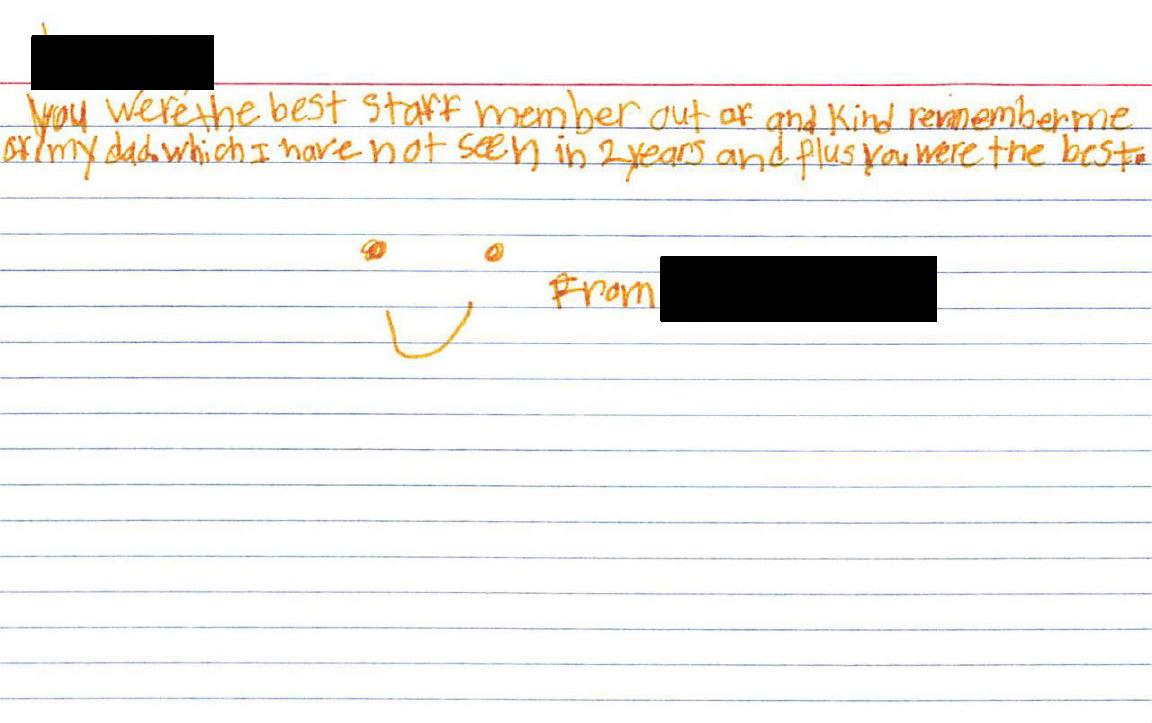 you were the best staff member out of and kind remember me
of my dad. which I have not seen in 2 years and plus you were the best.
From